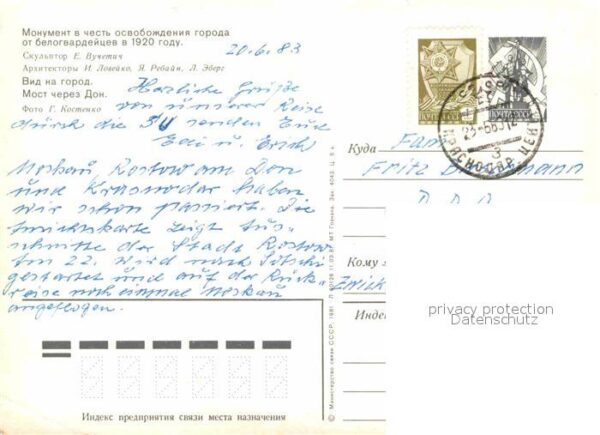 Монумент в честь освобождения города
от белогвардейцев в 1920 году.
Скульптор Е. Вучетич
Архитекторы И. Ловейко, Я. Ребайн, Л. Эберг
Вид на город.
Мост через Дон.
Фото Г. Костенко
20.6.83
Herzliche Grüße
von unserer Reise
durch die SU senden Euch
Edi u. Erich
Moskau, Rostow am Don
und Krasnodar haben
wir schon passiert. Die
Ansichtskarte zeigt Aus-
schnitte der Stadt Rostow
Am 22. wird nach Sotschi
gestartet und auf der Rück-
reise noch einmal Moskau
angeflogen.
ПОЧТА СССР
ПОЧТА СССР
КРАСНОДАР
Куда Fam
Fritz
DDR
Кому
Zwick
Индек
privacy protection
Datenschutz
Индекс предприятия связи места назначения
© Министерство связи СССР. 1981